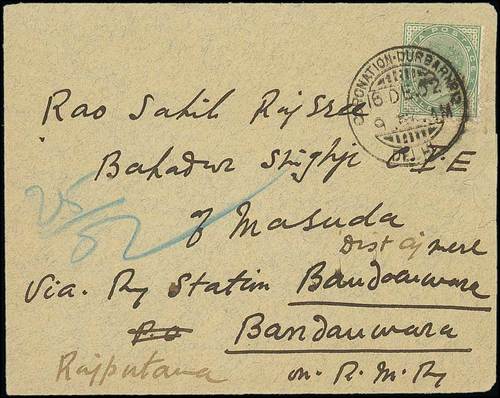 POSTAGE
CORONATION·DURBAR
16 DE
DELHI
Rao Sahib
Bahadur Singhji C.I.E
of Masuda
Dist Ajmere
25/12
Via. Ry Station Bandanwara
P.O Bandanwara
Rajputana on R. M. Ry